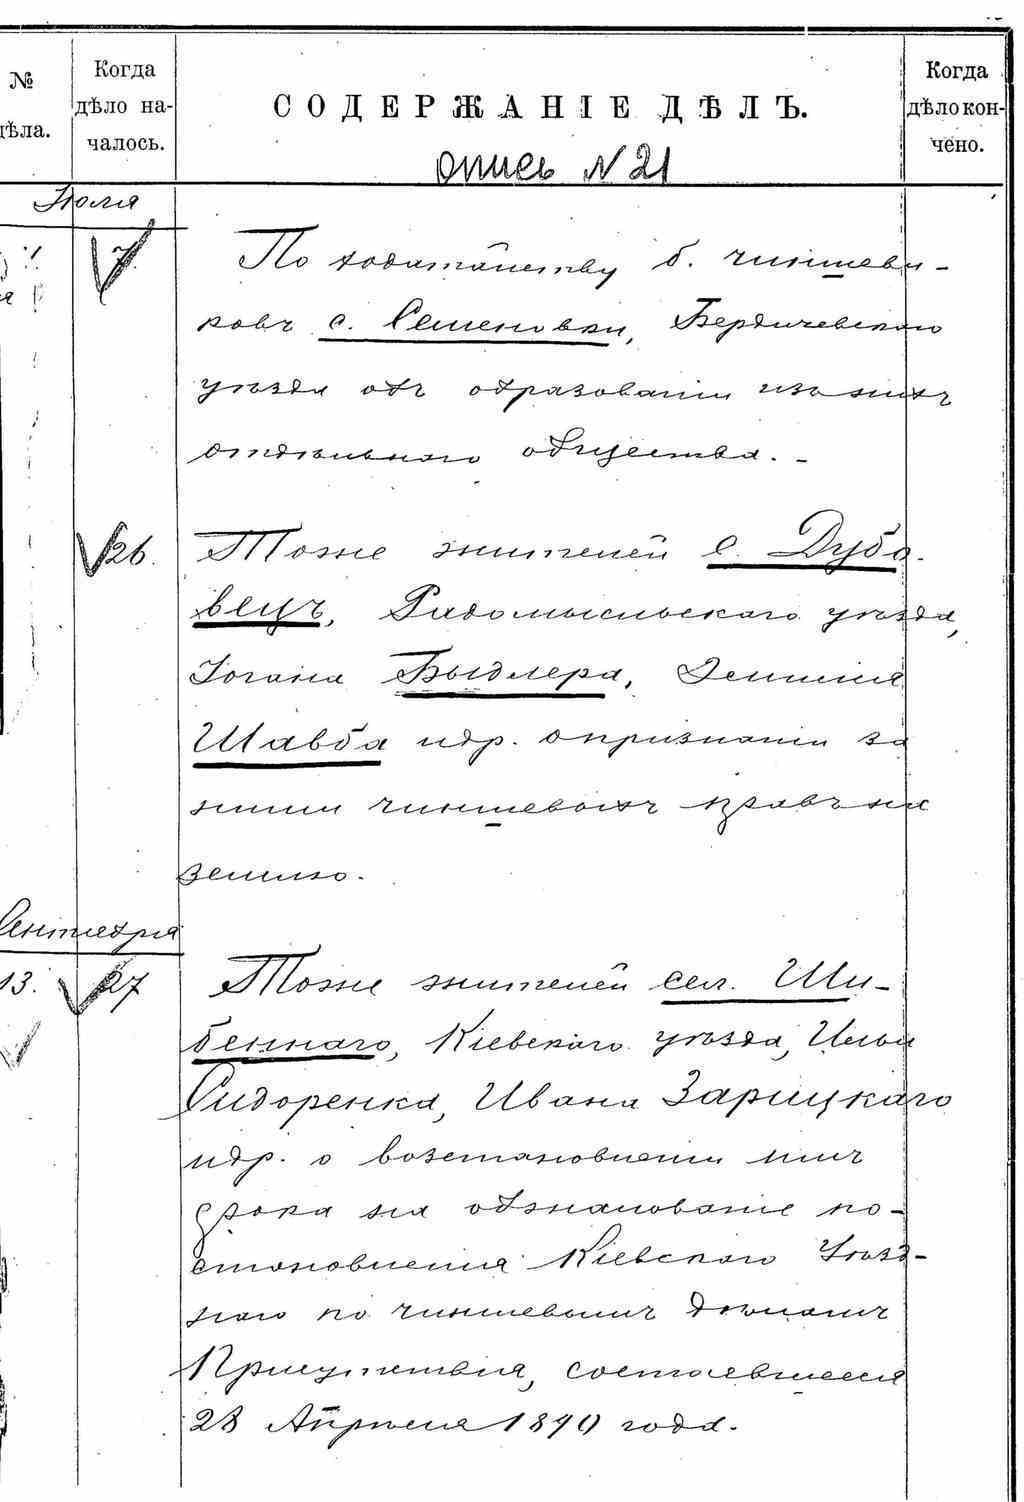 №
дѣла.
Когда
дѣло на-
чалось.
СОДЕРЖАНІЕ ДѢЛЪ.
Когда
дѣло кон-
чено.
опись N 21
Июля
7.
По ходатайству б. чиншеви-
ковъ с. Семеновки, Бердичевскаго
уѣзда объ образовании изъ нихъ
отдѣльнаго общества. -
26.
Тоже жителей с. Дубо-
вецъ, Радомысльскаго уѣзда,
Іогана Быдлера,
Шавба и др. о признании за
ними чиншевыхъ правъ на
землю.
Сентября
13.
27
Тоже жителей сел. Ши-
беннаго, Кіевскаго уѣзда, Ильи
Сидоренка, Ивана Зарицкаго
и др. о возстановлении имъ
срока на обжалование по-
становления Кіевскаго Уѣзд-
наго по чиншевымъ дѣламъ
Присутствия, состоявшееся
28 Апрѣля 1890 года.